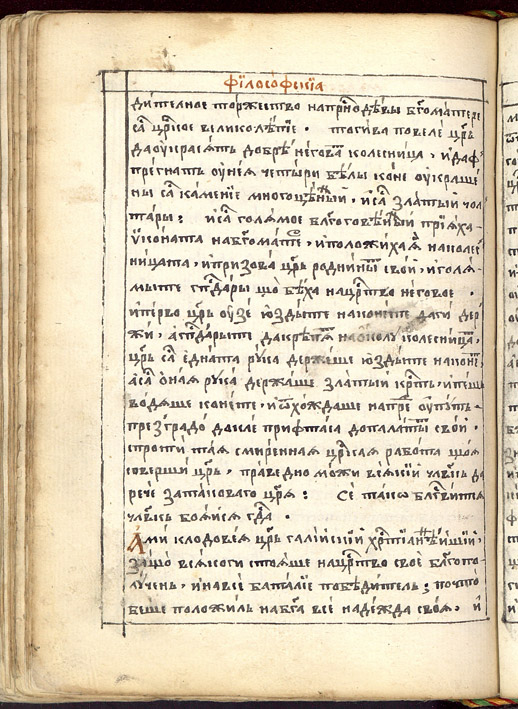 фїлосо́фскїа
ди́телное торжество̀ напрⷭ҇нодв҃ы бг҃ома́тере
са црⷭ҇кое великолѣ́пїе . тоги́ва повелѐ цр҃ь
даоукраса́тъ добрѐ не́гова колесни́ца , и҆даѵ
пре́гнатъ оу҆не́а четы́ри бѣ́лы ко́не оукраше
ны са ка́менїе многоцѣ́нный , и҆са зла́тый чол
та́ры : и҆са голѧ́мое бл҃гоговѣ́нїе прїѧ́ха
и҆ко́ната набг҃ома́тере , и҆положи́ха ѧ҆ на коле
сни́цата , и҆призова̀ цр҃ь родни́ны свои , и҆голѧ́
мыте гдⷭ҇ары що бѣ́ха нацрⷭ҇тво не́говое .
и҆пе́рво цр҃ь оу҆зѐ ю҆зды́те нако́нете да ги де́р
жи , а҆гдⷭ҇а́рыте дакрѣпѧ́тъ нао́колу колесни́ца ,
цр҃ь са е҆дна́та рꙋка̀ де́ржеше ю҆зды́те нако́не ,
а҆са о҆на́ѧ рука̀ де́ржаше зла́тый крⷭ҇тъ , и҆пешъ
во́дѧше ко́нете , и҆ѿхо́ждаше напре́ оу҆пꙋ́тъ
презгра́до докле прифта́са дополаты свои .
спроти таѧ смире́ннаѧ црⷭ҇каѧ рабо́та щоѧ
совершѝ цр҃ь , пра́ведно мо́жи всѧ́кїй чл҃вкъ да
речѐ затако́ваго цр҃ѧ : Сѐ та́кѡ блгⷭ҇ви́тсѧ
чл҃вкъ боѧ́йсѧ гдⷭ҇а .
А҆мѝ клодове́ѧ цр҃ь галі́йскїй хрⷭ҇тїа́нѣйшїй ,
защо̀ всѧ́коги стоѧ́ше нацрⷭ҇тво своѐ бл҃гопо
лу́ченъ , и҆навсѐ бата́лїе побѣди́тель ; почто̀
бе́ше положи́лъ набг҃а всѐ наде́жда своѧ̀ , и҆